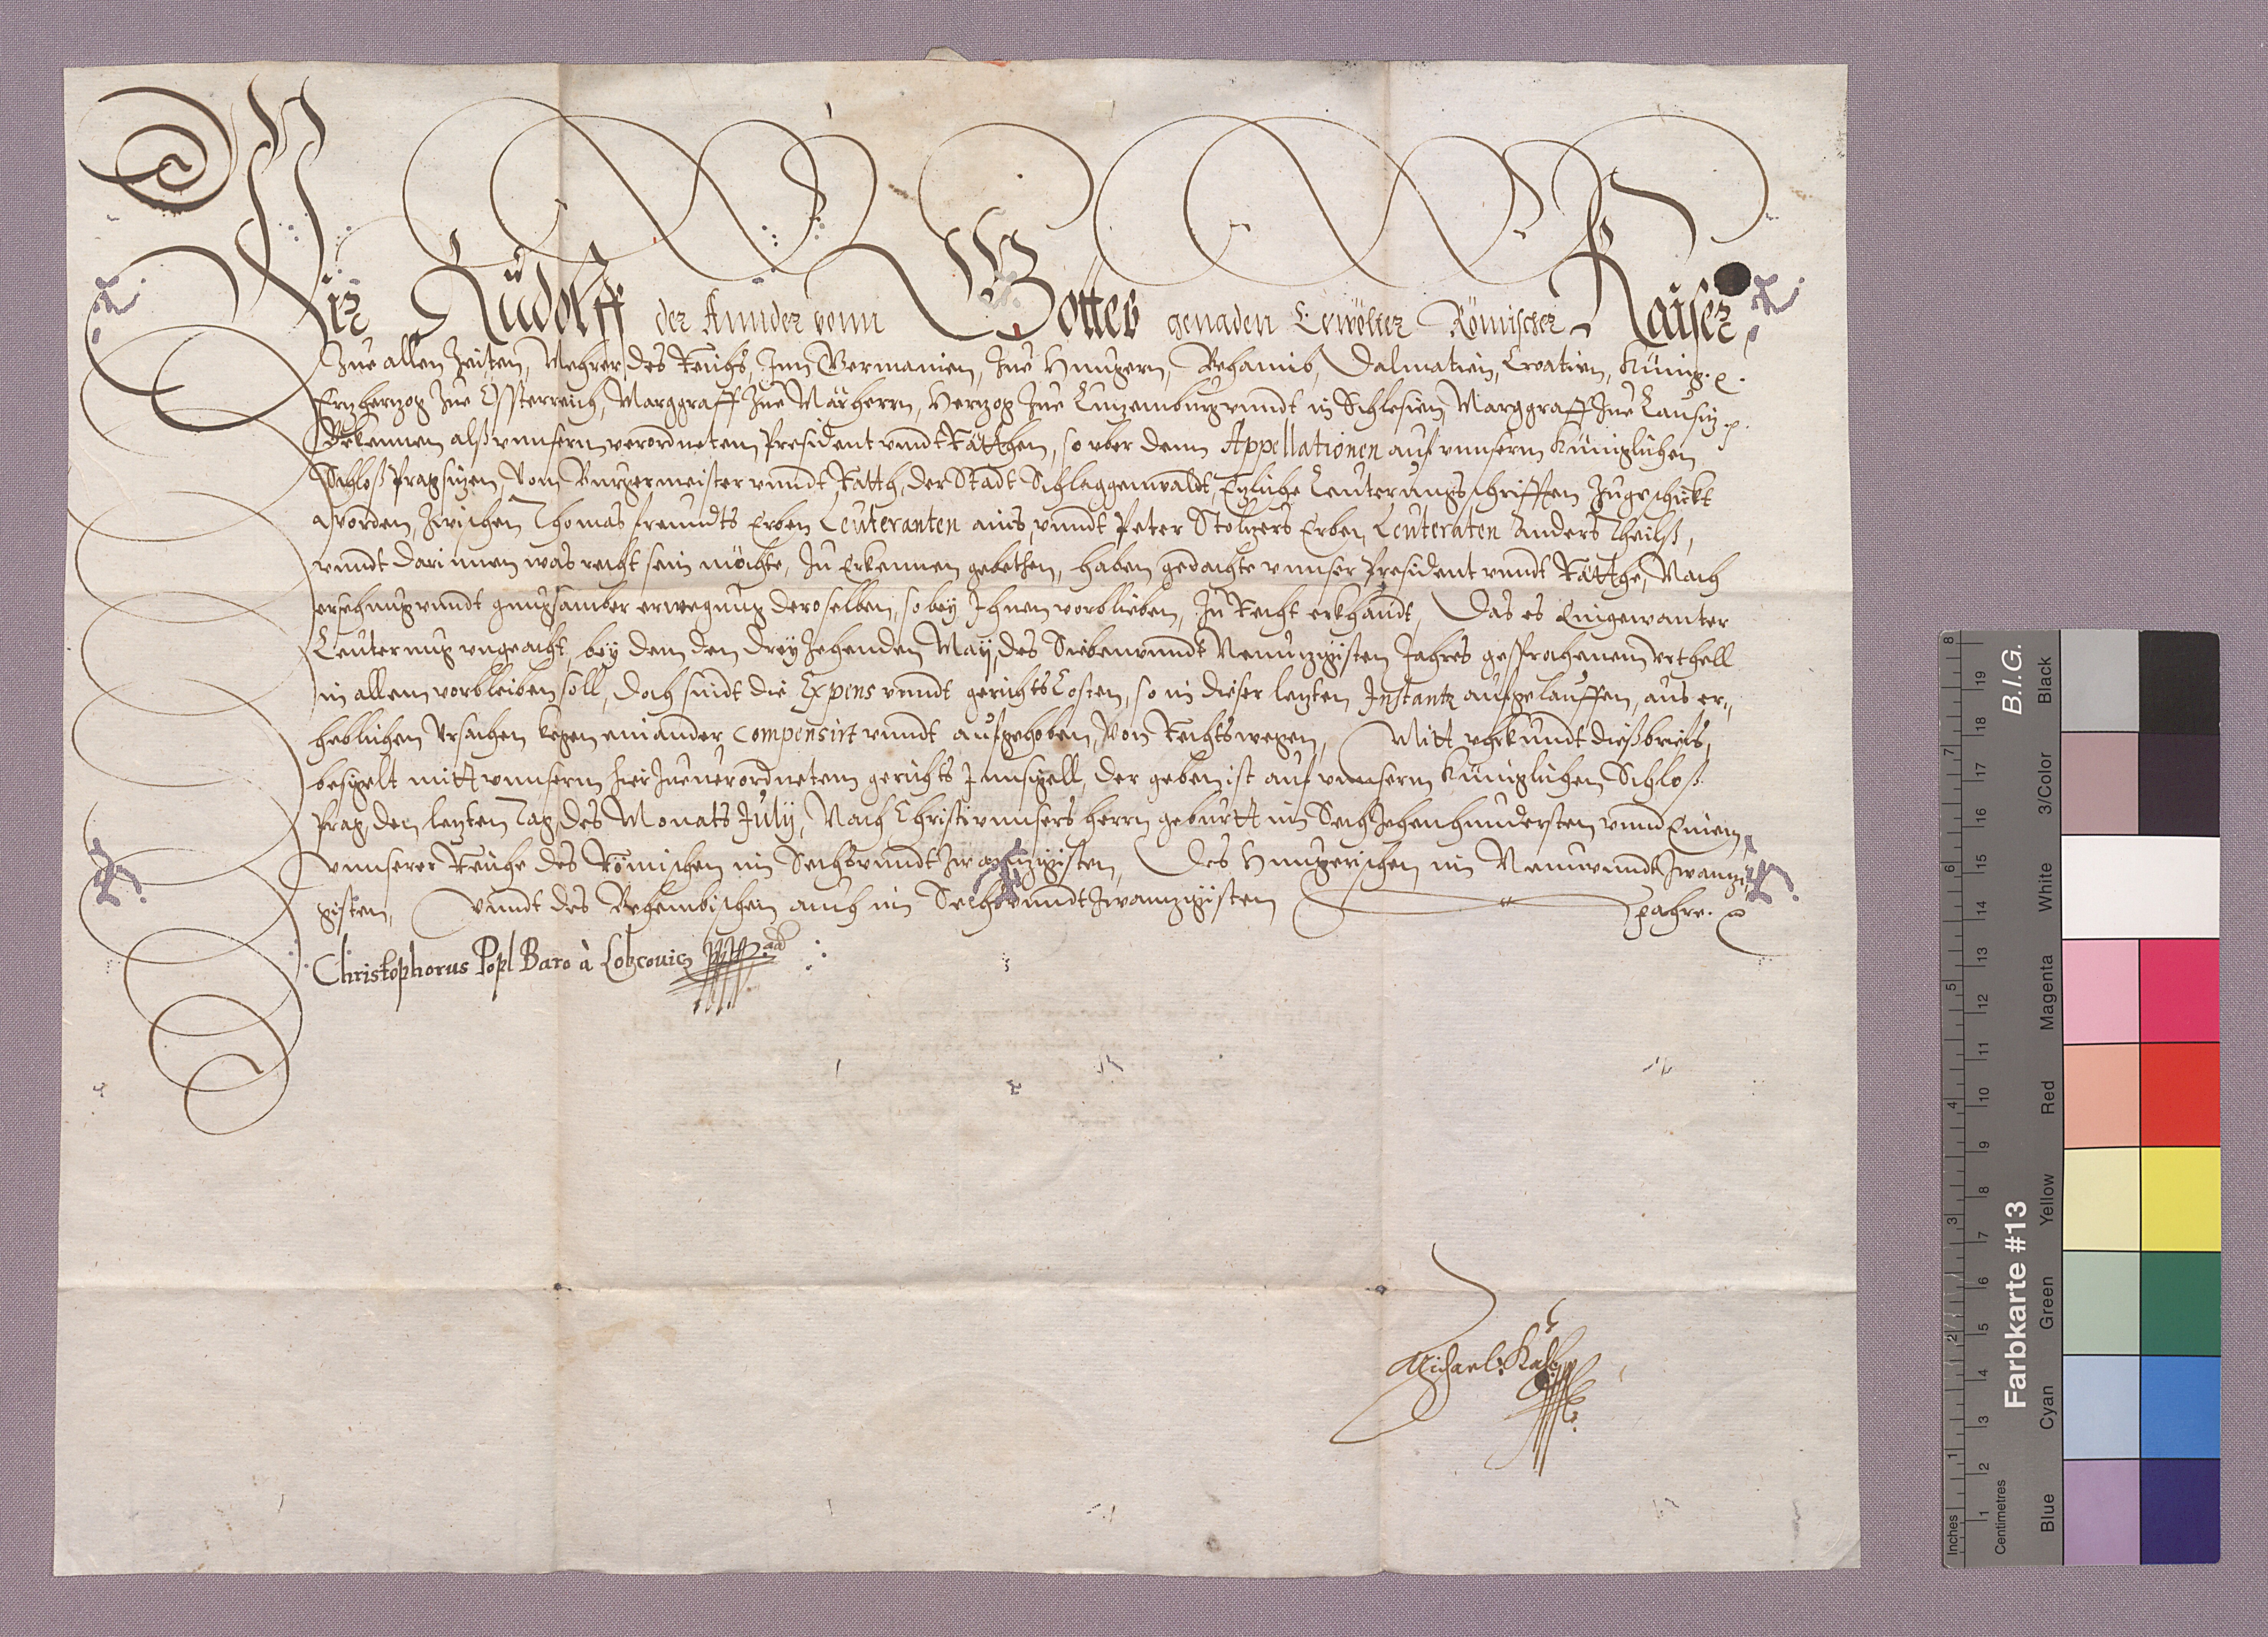 Wir Rudolff der Annder vonn Gottes genaden Erwölter Römischer Kaiser
Zue allen Zeiten, Mehrer des Reichs, Inn Germanien, Zue Hungern, Behaimb, Dalmatien, Croatien, Künig. etc.
Ertzhertzog Zue Össterreich, Marggraff Zue Märhern, Hertzog Zue Lutzemburg vnndt in Schlesien, Marggraff Zue Lausitz etc.
Bekennen alß vnnsern verordneten President vnndt Räthen, so vber denn Appellationen auf vnnserm Küniglichen
Schloß Prag sitzen, Vom Burgermeister vnndt Rath, der Stadt Schlaggenwaldt, Etzliche Leuterungsschrifften Zugeschickt
worden, Zwischen Thomas freundts Erben Leuteranten ains, vnndt Peter Stoltzers Erben, Leuteraten Anders Theilß,
vnndt darinnen was recht sein möchte, Zu Erkennen gebethen, haben gedachte vnnser President vnndt Räthe, Nach
ersehung vnndt gnugsamber erwegnug deroselben, so bey Ihnen vorblieben, Zu Recht erkhandt, Das es Eingewanter
Leuterung vngeacht, bey dem den dreyZehenden May, des Siebenvnndt Neuntzigisten Jahres gesprochenem Vrthell
in allem vorbleiben soll, doch sindt die Expens vnndt gerichts Costen, so in dieser letzten Instantz aufgelauffen, aus er-
heblichen Vrsachen kegen einander compensirt vnndt aufgehoben, Von Rechtswegen, Mitt vhrkundt dießbriefs,
besigelt mitt vnnserm hierZue verordnetem gerichts Innsigell, der geben ist auf vnnserm Küniglichen Schloß
Prag, den letzten Tag des Monats July, Nach Christi vnnsers herrn geburtt im SechZehenhundersten vnnd Einem,
vnnserer Reiche des Römischen im Sechsvnndt Zwantzigisten, Des Hungerischen im Neunvnndt Zwantzi-
gisten, Vnndt des Behembischen auch im Sechsvnndt Zwantzigisten Jahre. etc.
Christophorus Popl Baro à Lobcouicz
Michael
B.I.G.
Farbkarte #13
Inches
Centimetres
1 2 3 4 5 6 7 8
1 2 3 4 5 6 7 8 9 10 11 12 13 14 15 16 17 18 19
Blue Cyan Green Yellow Red Magenta White 3/Color Black